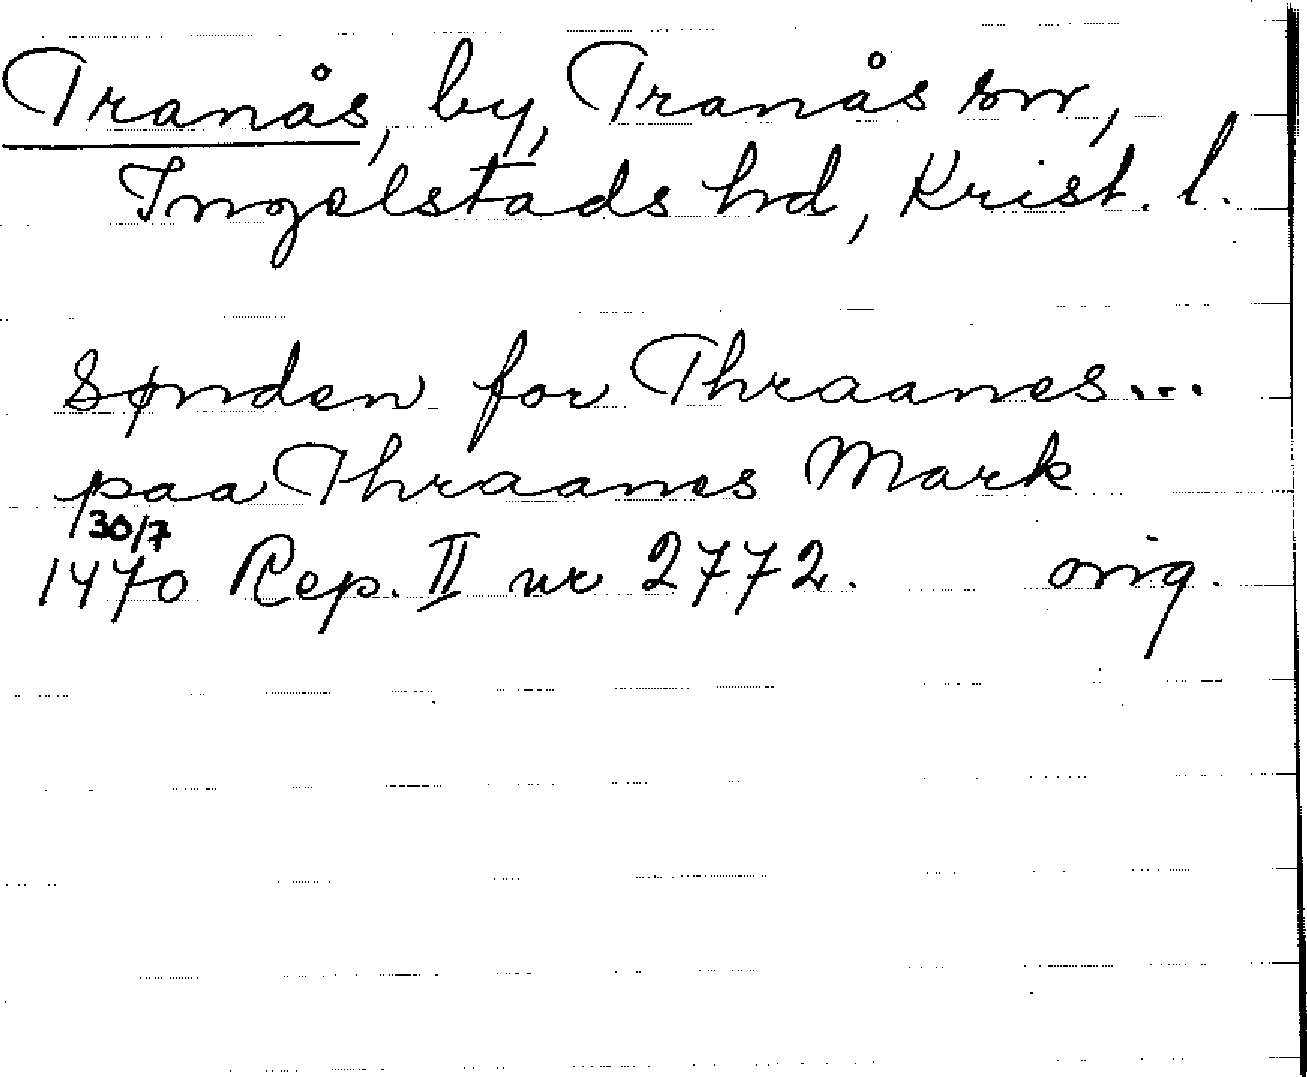 Tranås, by, Tranås sn,
Ingelstads hd, Krist. l.
Sønden for Thraanes...
paa Thraanes Mark
30/7
1470 Rep. II nr 2772. orig.